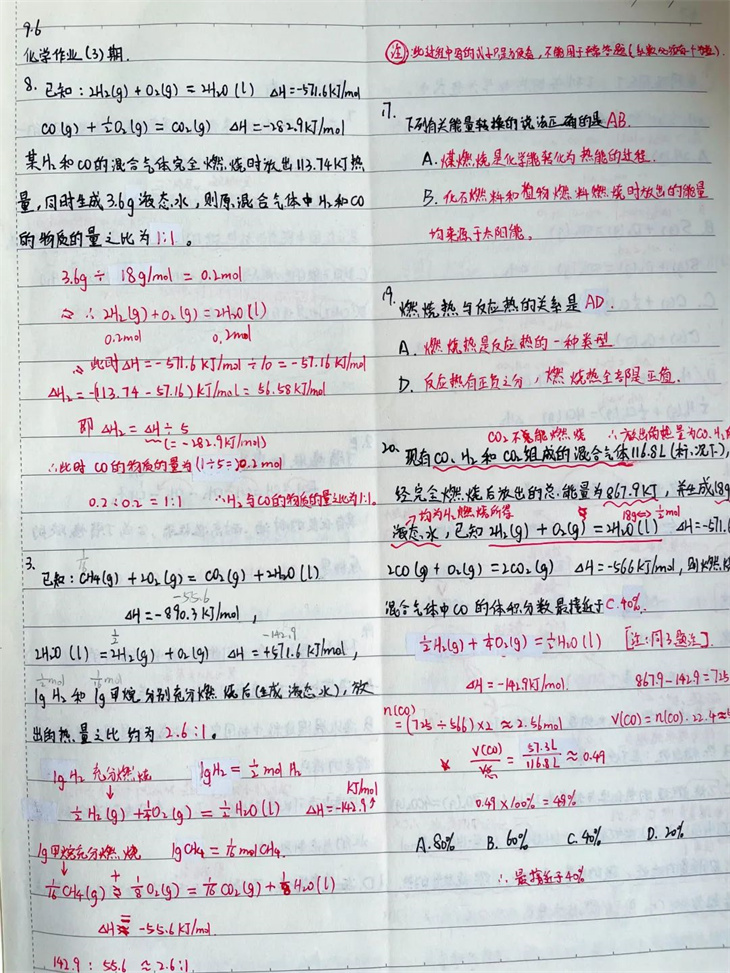 9.6
化学作业(3)期.
8. 已知: 2H₂(g) + O₂(g) = 2H₂O(l) ΔH = -571.6kJ/mol
CO(g) + ½O₂(g) = CO₂(g) ΔH = -282.9kJ/mol
某H₂和CO的混合气体完全燃烧时放出113.74kJ热
量,同时生成3.6g液态水,则原混合气体中H₂和CO
的物质的量之比为1:1。
3.6g ÷ 18g/mol = 0.2mol
∴ 2H₂(g) + O₂(g) = 2H₂O(l)
0.2mol 0.2mol
∴此时ΔH = -571.6 kJ/mol ÷ 10 = -57.16kJ/mol
ΔH₂ = -(113.74 - 57.16) kJ/mol = 56.58kJ/mol
即 ΔH₂ = ΔH ÷ 5
(= -282.9kJ/mol)
∴此时CO的物质的量为(1÷5=)0.2mol
0.2 : 0.2 = 1:1 ∴H₂与CO的物质的量之比为1:1.
3.
1/16
已知: CH₄(g) + 2O₂(g) = CO₂(g) + 2H₂O(l)
-55.6
ΔH = -890.3kJ/mol,
½ -142.9
2H₂O(l) = 2H₂(g) + O₂(g) ΔH = +571.6kJ/mol,
½mol 1/16mol
1g H₂和1g甲烷分别充分燃烧后(生成液态水),放
出的热量之比约为 2.6:1。
1g H₂ 充分燃烧 1gH₂ = ½ mol H₂
kJ/mol
½H₂(g) + ¼O₂(g) = ½H₂O(l) ΔH = -142.9
1g甲烷充分燃烧 1gCH₄ = 1/16 molCH₄.
1/16CH₄(g) + 1/8O₂(g) = 1/16CO₂(g) + 1/8H₂O(l)
ΔH = -55.6kJ/mol
142.9 : 55.6 ≈ 2.6:1
17. 下列有关能量转换的说法正确的是AB.
A. 煤燃烧是化学能转化为热能的过程.
B. 化石燃料和植物燃料燃烧时放出的能量
均来源于太阳能。
19. 燃烧热与反应热的关系是AD.
A. 燃烧热是反应热的一种类型
D. 反应热有正负之分,燃烧热全部是正值.
CO₂不能燃烧 ∴放出的热量为CO、H₂
20. 现有CO、H₂和CO₂组成的混合气体116.8L(标况下),
经完全燃烧后放出的总能量为867.9kJ,并生成18g
均为H₂燃烧所得
液态水,已知2H₂(g) + O₂(g) = 2H₂O(l) ΔH = -571.6
2CO(g) + O₂(g) = 2CO₂(g) ΔH = -566kJ/mol,则燃烧
混合气体中CO的体积分数最接近于C.40%.
½H₂(g) + ¼O₂(g) = ½H₂O(l) [注:同3题注].
ΔH = -142.9kJ/mol. 867.9 - 142.9 = 725
n(CO)
= (725 ÷ 566) × 2 ≈ 2.56mol V(CO) = n(CO)·22.4
V(CO) = 57.3L ≈ 0.49
116.8L
0.49 × 100% = 49%
A. 80% B. 60% C. 40% D. 20%
∴最接近于40%